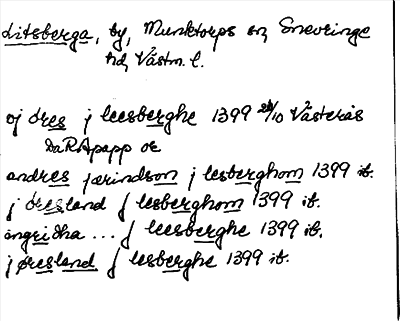 Litsberga, by, Munktorps sn, Snevringe
hd, Västm. l.
oj dres j leesberghe 1399 28/10 Västerås
DaRApapp or
andres jærindson j lesberghom 1399 ib.
j øresland j lesberghom 1399 ib.
ingridha ... j leesberghe 1399 ib.
j øresland j lesberghe 1399 ib.